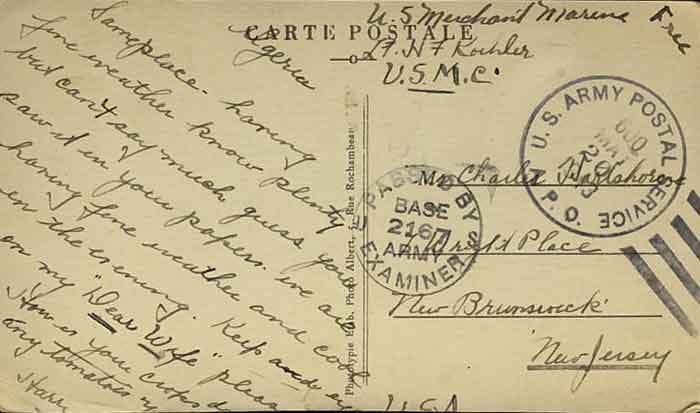 CARTE POSTALE
Someplace
Algeria
fine weather know plenty
but can't say much guess you
saw it in your papers. we are
having fine weather and cool
in the evening. Keep and eye
on my "Dear Wife" please
How is your crops
any tomatoes
Harr
U S Merchant Marine Free
Lt. H F Koehler
U.S.M.C.
U.S. ARMY POSTAL SERVICE
600
MAR
25
A.P.O.
PASSED BY
BASE
2167
ARMY
EXAMINER
Mr Charles
Wright Place
New Brunswick
New Jersey
U.S.A
Phototypie Etab. Photo Albert, Rue Rochambeau